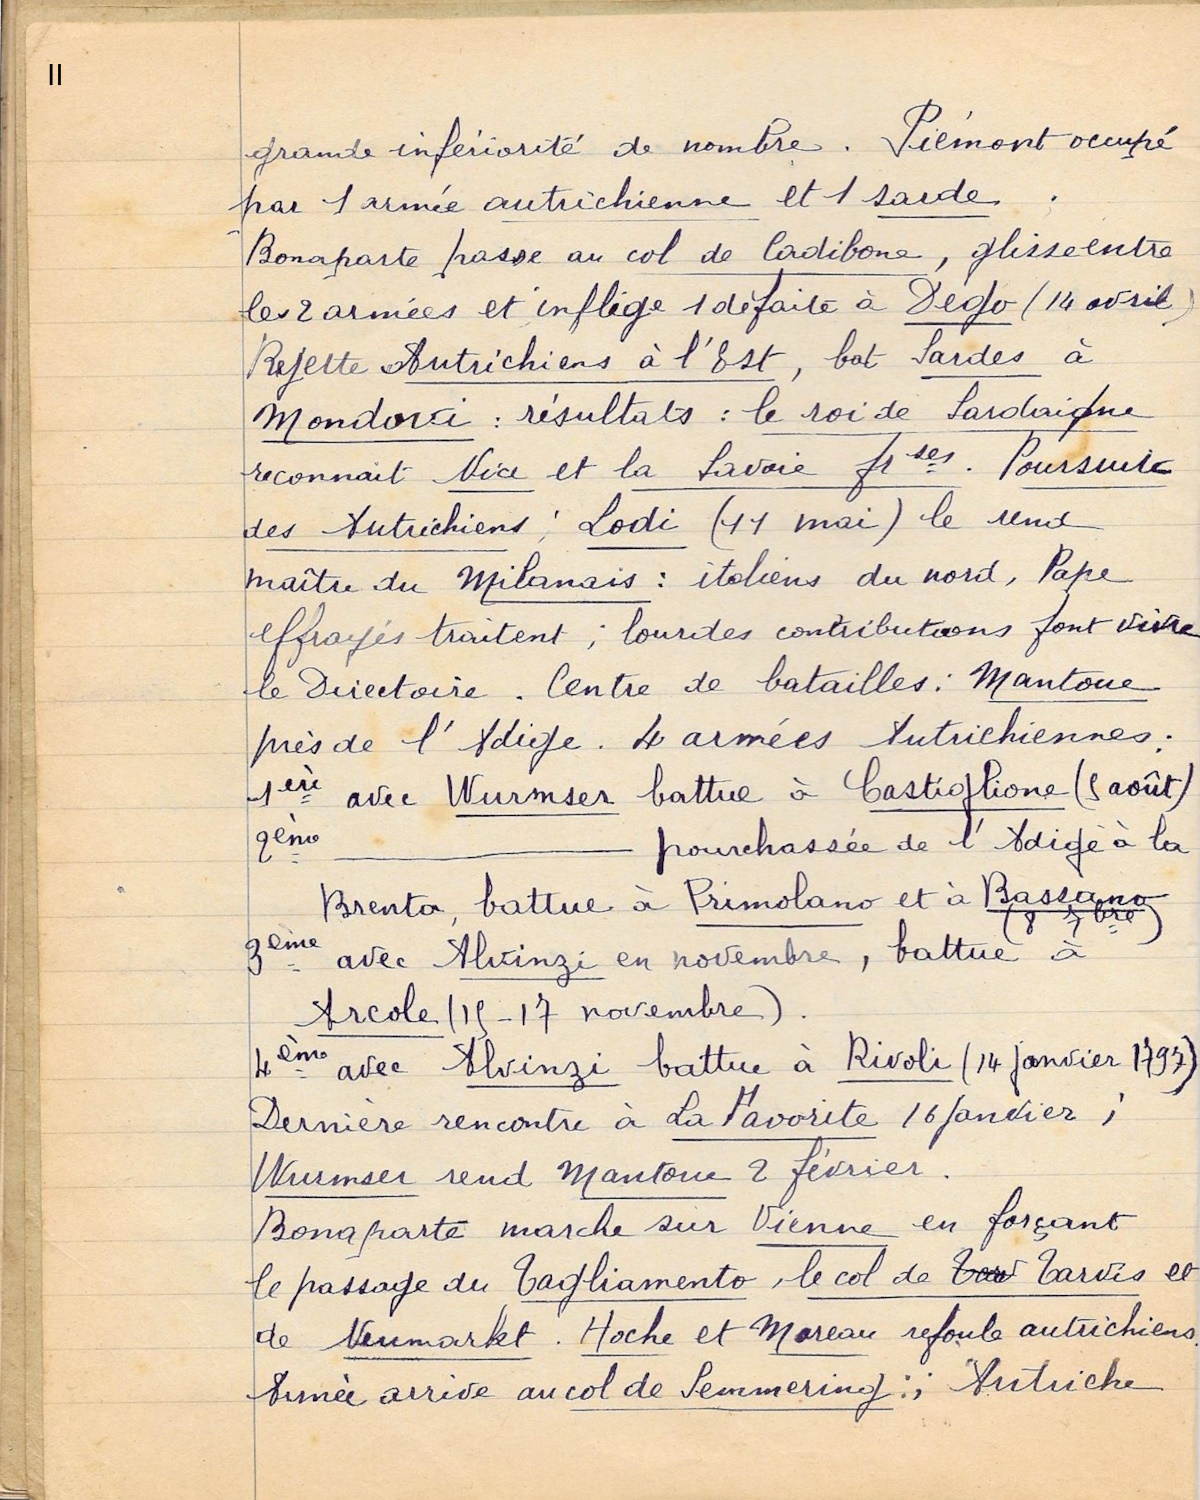 II
grande infériorité de nombre. Piémont occupé
par 1 armée autrichienne et 1 sarde.
Bonaparte passe au col de Cadibone, glisse entre
les 2 armées et inflige 1 défaite à Dego (14 avril)
Rejette Autrichiens à l'Est, bat Sardes à
Mondovi : résultats : le roi de Sardaigne
reconnait Nice et la Savoie frses. Poursuite
des Autrichiens ; Lodi (11 mai) le rend
maître du Milanais : italiens du nord, Pape
effrayés traitent ; lourdes contributions font vivre
le Directoire. Centre de batailles : Mantoue
près de l'Adige. 4 armées Autrichiennes :
1ère avec Wurmser battue à Castiglione (5 août)
2ème ——— pourchassée de l'Adige à la
Brenta, battue à Primolano et à Bassano
(8 7bre)
3ème avec Alvinzi en novembre, battue à
Arcole (15-17 novembre).
4ème avec Alvinzi battue à Rivoli (14 janvier 1797)
Dernière rencontre à La Favorite 16 janvier ;
Wurmser rend Mantoue 2 février.
Bonaparte marche sur Vienne en forçant
le passage du Tagliamento, le col de Tarvis et
de Neumarkt. Hoche et Moreau refoule autrichiens.
Armée arrive au col de Semmering : ; Autriche